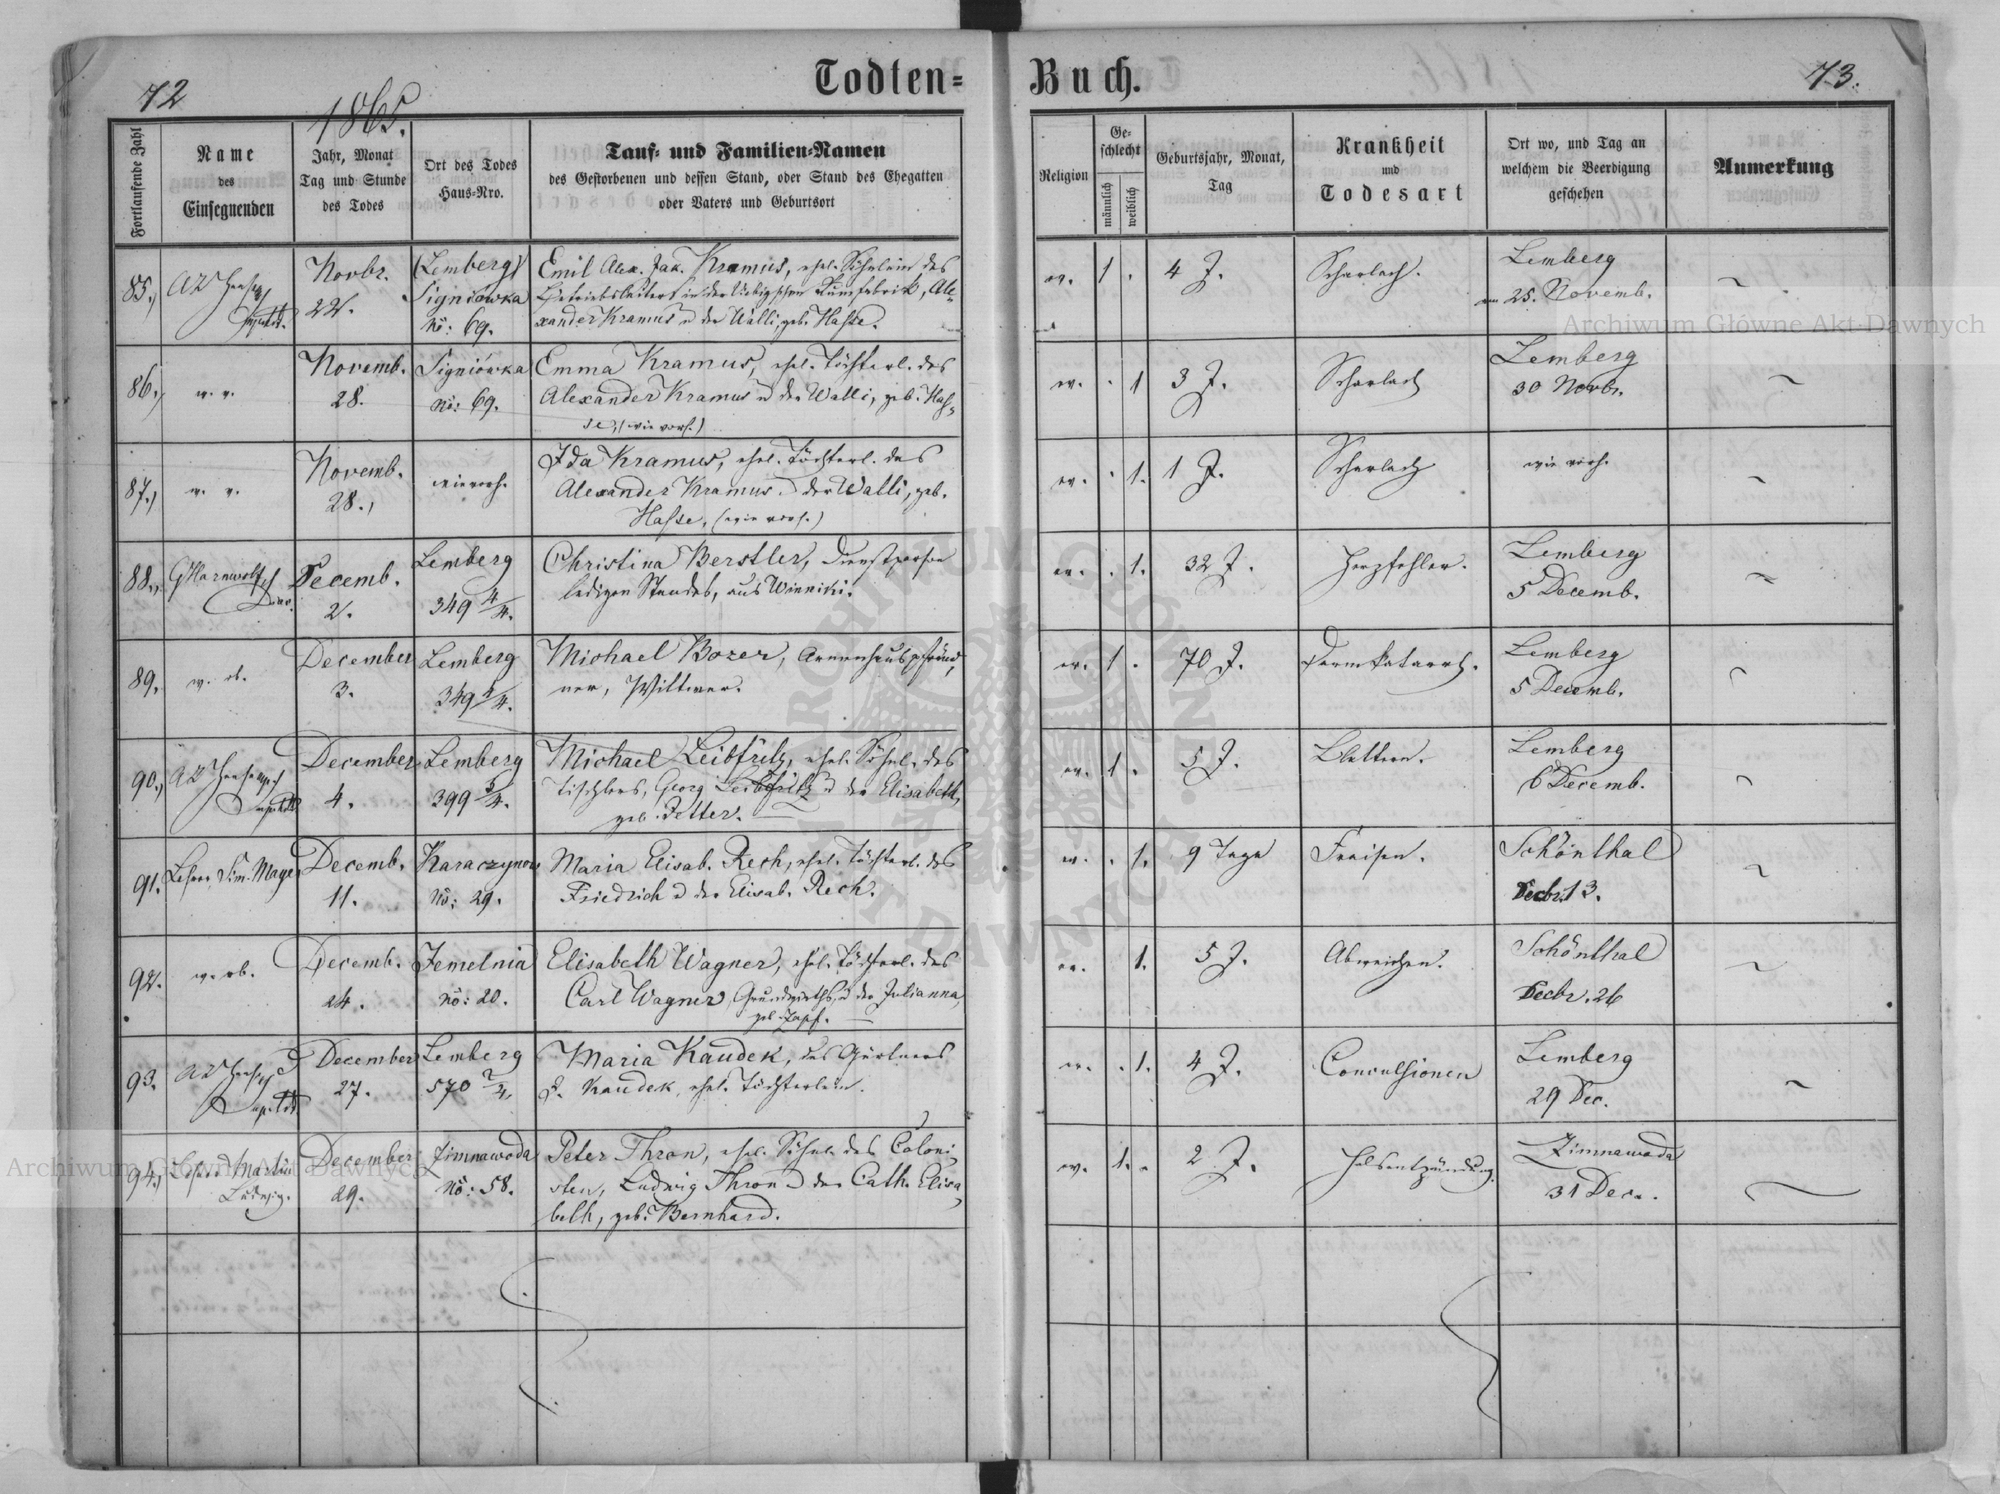 72
Todten=
Buch.
73.
1865.
Fortlaufende Zahl
Name
des
Einsegnenden
Jahr, Monat
Tag und Stunde
des Todes
Ort des Todes
Haus-Nro.
Tauf- und Familien-Namen
des Gestorbenen und dessen Stand, oder Stand des Ehegatten
oder Vaters und Geburtsort
Religion
Ge-
schlecht
männlich
weiblich
Geburtsjahr, Monat,
Tag
Krankheit
und
Todesart
Ort wo, und Tag an
welchem die Beerdigung
geschehen
Anmerkung
85.,
Novbr.
22.
(Lemberg)
Signiówka
No: 69.
Emil Alex. Jak. Kramus, ehel. Söhnlein des
Betriebsleiters in der
xander Kramus u der Walli, geb. Hasse.
ev. 1 .
4 J.
Scharlach.
Lemberg
am 25. Novemb.
86.,
w. v.
Novemb.
28.
Signiówka
No: 69.
Emma Kramus, ehel. Töchterl. des
Alexander Kramus u der Walli, geb. Has=
se, (wie vorh.)
ev. . 1
3 J.
Scharlach
Lemberg
30 Novbr.
87.,
w. v.
Novemb.
28.,
wie vorh.
Ida Kramus, ehel. Töchterl. des
Alexander Kramus u der Walli, geb.
Hasse, (wie vorh.)
ev. . 1.
1 J.
Scharlach
wie vorh.
88.,
Decemb.
2.
Lemberg
349 4/4.
Christina Berstler, Dienstperson
ledigen Standes, aus Winniki.
ev. . 1.
32 J.
Herzfehler.
Lemberg
5 Decemb.
89.,
w. ob.
December
3.
Lemberg
349 4/4.
Michael Bozer, Armenhauspfründ,
ner, Wittwer.
ev. 1 .
70 J.
Darmkatarrh.
Lemberg
5 Decemb.
90.,
December
4.
Lemberg
399 3/4.
Michael Leibfritz, ehel. Söhnl. des
Tischlers, Georg Leibfritz u der Elisabeth,
geb. Zetter.
ev. 1 .
5 J.
Blattern.
Lemberg
6 Decemb.
91.
Lehrer Sim. Mayer
Decemb.
11.
Karaczynow
No: 29.
Maria Elisab. Rech, ehel. Töchterl. des
Friedrich u der Elisab. Rech.
ev. . 1.
9 Tage
Fraisen.
Schönthal
Decbr. 13.
92.
w. ob.
Decemb.
24.
Jemelnia
No: 20.
Elisabeth Wagner, ehel. Töchterl. des
Carl Wagner, Grundwirths, u der Julianna,
geb. Zapf.
ev. 1.
5 J.
Abweichen.
Schönthal
Decbr. 26
93.
December
27.
Lemberg
570 2/4
Maria Kaudek, des Gärtners
J. Kaudek, ehel. Töchterlein.
ev. . 1.
4 J.
Convulsionen
Lemberg
29 Dec.
94.,
Lehrer Martin
Ludwig.
December
29.
Zimnawoda
No: 58.
Peter Thron, ehel. Söhnl. des Coloni
sten, Ludwig Thron u der Cath. Elisa
beth, geb. Bernhard.
ev. 1. .
2 J.
Halsentzündung.
Zimnawoda
31 Dec.
Archiwum Główne Akt Dawnych
Archiwum Główne Akt Dawnych
ARCHIWUM GŁÓWNE AKT DAWNYCH